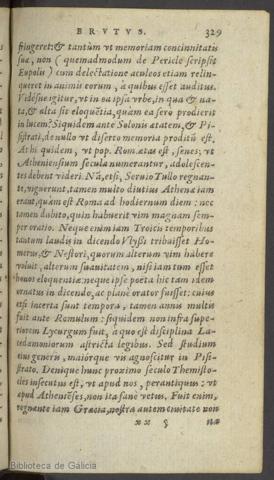 BRVTVS. 329
fringeret: & tantùm vt memoriam concinnitatis
suæ, non (quemadmodum de Pericle scripsit
Eupolis) cum delectatione aculeos etiam relin-
queret in animis eorum, à quibus esset auditus.
Vidésne igitur, vt in ea ipsa vrbe, in qua & na-
ta, & alta sit eloquētia, quàm ea sero prodierit
in lucem? Siquidem ante Solonis ætatem, & Pi-
sistrati, de nullo vt diserto memoria prodita est.
At hi quidem, vt pop. Rom. ætas est, senes: vt
Atheniensium secula numerantur, adolescen-
tes debent videri. Nā, etsi, Seruio Tullo regnan-
te, viguerunt, tamen multo diutius Athenæ iam
erant, quàm est Roma ad hodiernum diem: nec
tamen dubito, quin habuerit vim magnam sem-
per oratio. Neque enim iam Troicis temporibus
tantum laudis in dicendo Vlyssi tribuisset Ho-
merus, & Nestori, quorum alterum vim habere
voluit, alterum suauitatem, nisi iam tum esset
honos eloquentiæ: neque ipse poeta hic tam idem
ornatus in dicendo, ac planè orator fuisset: cuius
etsi incerta sunt tempora, tamen annis multis
fuit ante Romulum: siquidem non infra supe-
riorem Lycurgum fuit, à quo est disciplina La-
cedæmoniorum astricta legibus. Sed studium
eius generis, maiórque vis agnoscitur in Pisi-
strato. Denique hunc proximo seculo Themisto-
cles insecutus est, vt apud nos, perantiquus: vt
apud Athenieses, non ita sanè vetus. Fuit enim,
regnante iam Græcia, nostra autem ciuitate non
xx 5 ita
Biblioteca de Galicia